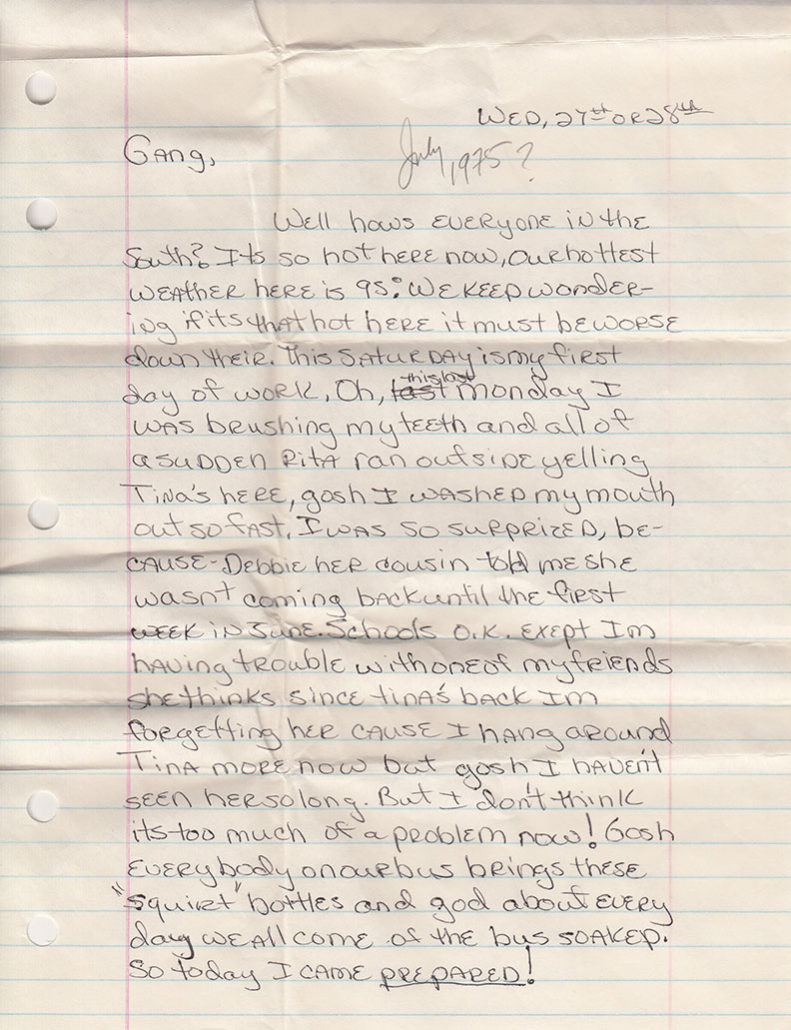 WED, 27th OR 28th
July, 1975?
GANG,
Well hows EVERyone in the
South? Its so hot here now, our hottest
weather here is 95°. We keep wonder-
ing if its that hot here it must be worse
down their. This Saturday is my first
day of work. Oh, last this last monday I
was brushing my teeth and all of
a sudden Rita ran outside yelling
Tina's here, gosh I washed my mouth
out so fast. I was so surprized, be-
cause - Debbie her cousin told me she
wasnt coming back until the first
week in June. Schools O.K. exept Im
having trouble with one of my friends
she thinks since tina's back Im
forgetting her cause I hang around
Tina more now but gosh I haven't
seen her so long. But I don't think
its too much of a problem now! Gosh
everybody on our bus brings these
"squirt" bottles and god about every
day we all come of the bus soaked.
So today I came prepared!